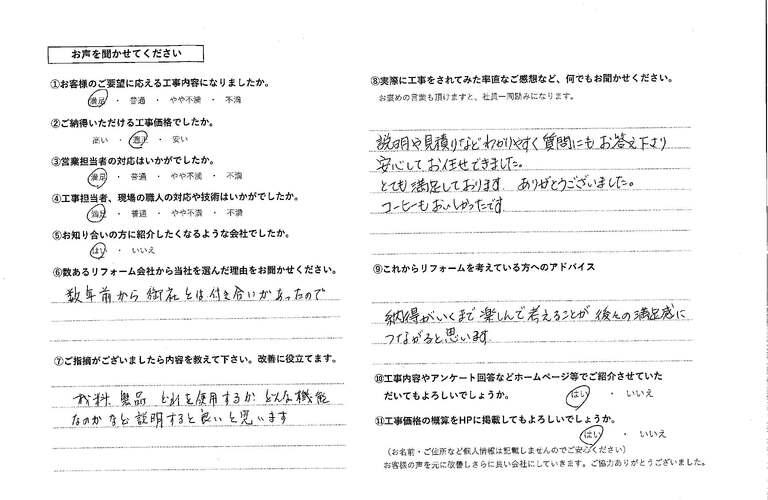 お声を聞かせてください
①お客様のご要望に応える工事内容になりましたか。
満足 ・ 普通 ・ やや不満 ・ 不満
②ご納得いただける工事価格でしたか。
高い ・ 適正 ・ 安い
③営業担当者の対応はいかがでしたか。
満足 ・ 普通 ・ やや不満 ・ 不満
④工事担当者、現場の職人の対応や技術はいかがでしたか。
満足 ・ 普通 ・ やや不満 ・ 不満
⑤お知り合いの方に紹介したくなるような会社でしたか。
はい ・ いいえ
⑥数あるリフォーム会社から当社を選んだ理由をお聞かせください。
数年前から御社とは付き合いがあったので
⑦ご指摘がございましたら内容を教えて下さい。改善に役立てます。
材料 製品 どれを使用するか どんな機能
なのかなど説明すると良いと思います
⑧実際に工事をされてみた率直なご感想など、何でもお聞かせください。
お褒めの言葉も頂けますと、社員一同励みになります。
説明や見積りなどわかりやすく質問にもお答え下さり
安心してお任せできました。
とても満足しております ありがとうございました。
コーヒーもおいしかったです
⑨これからリフォームを考えている方へのアドバイス
納得がいくまで楽しんで考えることが後々の満足感に
つながると思います
⑩工事内容やアンケート回答などホームページ等でご紹介させていた
だいてもよろしいでしょうか。 はい ・ いいえ
⑪工事価格の概算をHPに掲載してもよろしいでしょうか。
はい ・ いいえ
（お名前・ご住所など個人情報は記載しませんのでご安心ください）
お客様の声を元に改善しさらに良い会社にしていきます。ご協力ありがとうございました。